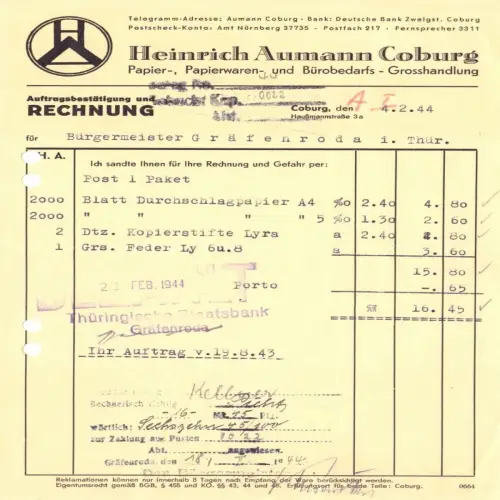 Telegramm-Adresse: Aumann Coburg - Bank: Deutsche Bank Zweigst. Coburg
Postscheck-Konto: Amt Nürnberg 37735 - Postfach 217 - Fernsprecher 3311
HAC
Heinrich Aumann Coburg
Papier-, Papierwaren- und Bürobedarfs - Grosshandlung
Auftragsbestätigung und
RECHNUNG
Coburg, den 4.2.44
Haußmannstraße 3a
A I
für Bürgermeister Gräfenroda i. Thür.
H. A. Ich sandte Ihnen für Ihre Rechnung und Gefahr per:
Post 1 Paket
2000 Blatt Durchschlagpapier A4 %o 2.40 4. 80
2000 " " " " 5 %o 1.30 2. 60
2 Dtz. Kopierstifte Lyra a 2.40 4. 80
1 Grs. Feder Ly 6u.8 a 3. 60
15. 80
Porto -. 65
RM 16. 45
23. FEB. 1944
Thüringische Staatsbank
Gräfenroda
Ihr Auftrag v.19.8.43
Kellner
Rechnerisch richtig
-16- RM 45 Pf.
wörtlich: Sechszehn 45/100
zur Zahlung aus Posten
Abt. angewiesen.
Gräfenroda, den 18. 44
Der Bürgermeister
Reklamationen können nur innerhalb 8 Tagen nach Empfang der Ware berücksichtigt werden.
Eigentumsrecht gemäß BGB. § 455 und KO. §§ 43, 44 und 46. Erfüllungsort für beide Teile: Coburg.
0664